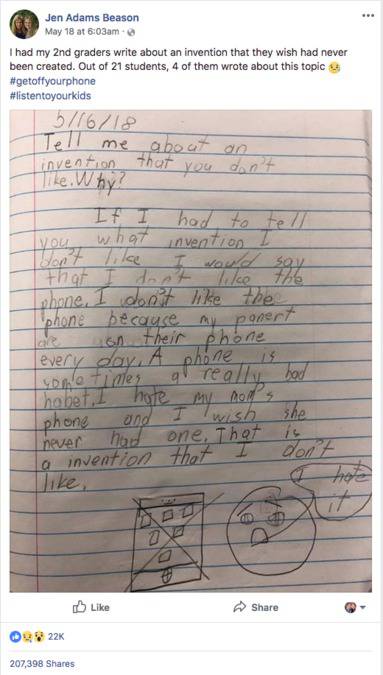 Jen Adams Beason
May 18 at 6:03am ·
I had my 2nd graders write about an invention that they wish had never
been created. Out of 21 students, 4 of them wrote about this topic 😢
#getoffyourphone
#listentoyourkids
5/16/18
Tell me about an
invention that you don't
like. Why?
If I had to tell
you what invention I
don't like I would say
that I don't like the
phone. I don't like the
phone because my panert
are on their phone
every day. A phone is
sometimes a really bad
habet. I hate my mom's
phone and I wish she
never had one. That is
a invention that I don't
like.
I hate
it
Like
Share
22K
207,398 Shares